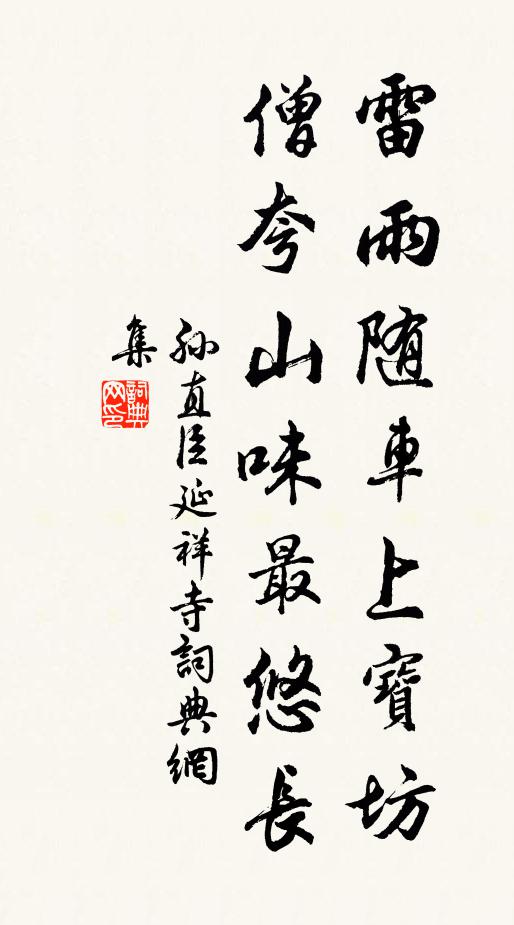 雷雨随車上寶坊
僧夸山味最悠長
孫直臣延祥寺詞典網
集
詞典
网印